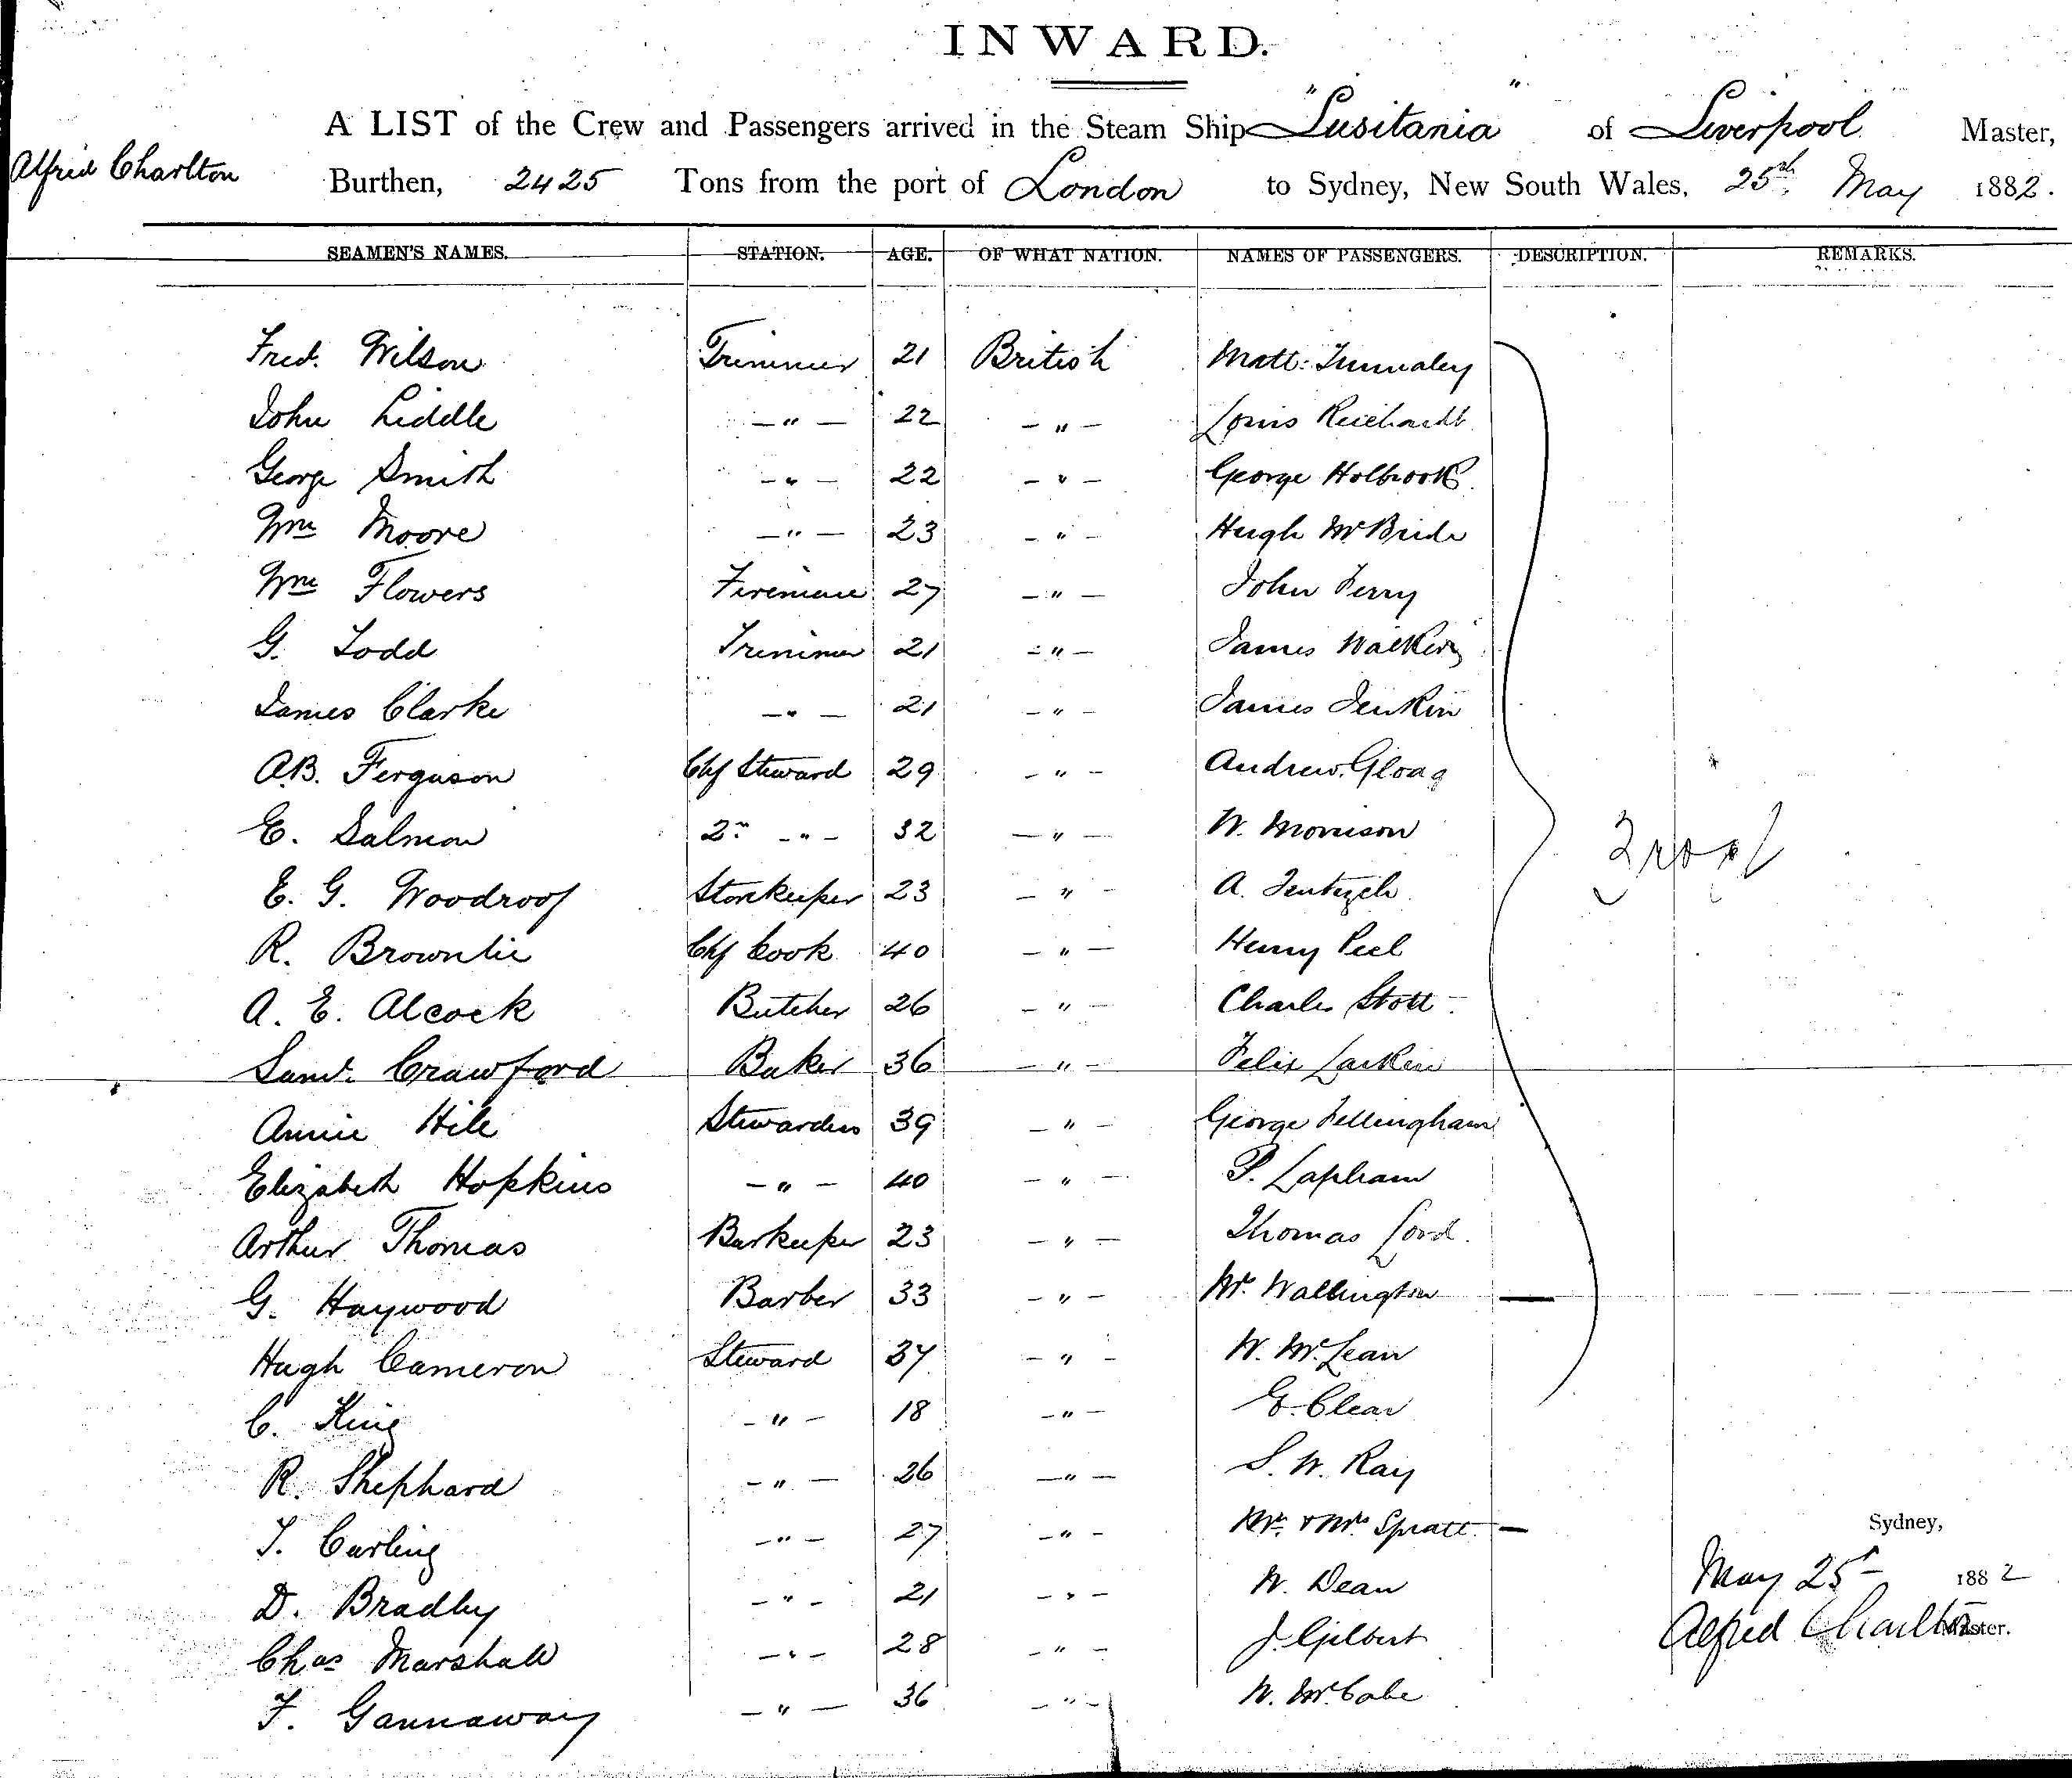 INWARD.
A LIST of the Crew and Passengers arrived in the Steam Ship "Lusitania" of Liverpool Master,
Alfred Charlton Burthen, 2425 Tons from the port of London to Sydney, New South Wales, 25th May 1882.
SEAMEN'S NAMES. STATION. AGE. OF WHAT NATION. NAMES OF PASSENGERS. DESCRIPTION. REMARKS.
Fred. Wilson Trimmer 21 British Matt:
John Liddle — " — 22 — " — Louis Reichardt
George Smith — " — 22 — " — George Holbrook
Wm Moore — " — 23 — " — Hugh McBride
Wm Flowers Fireman 27 — " — John Perry
G. Todd Trimmer 21 — " — James Walker
James Clarke — " — 21 — " — James Jenkin
A.B. Ferguson Chf Steward 29 — " — Andrew Gloag
E. Salmon 2nd — " — 32 — " — W. Morrison
E. G. Woodroof Storekeeper 23 — " — A.
R. Brownlie Chf Cook 40 — " — Henry Peel
A. E. Alcock Butcher 26 — " — Charles Stott
Saml. Crawford Baker 36 — " — Felix Larkin
Annie Hile Stewardess 39 — " — George Fellingham
Elizabeth Hopkins — " — 40 — " — P. Lapham
Arthur Thomas Barkeeper 23 — " — Thomas Lord.
G. Haywood Barber 33 — " — Mr. Wallington —
Hugh Cameron Steward 34 — " — W. McLean
C. King — " — 18 — " — E. Clear
R. Shephard — " — 26 — " — S. W. Ray
T. Curling — " — 27 — " — Mr. & Mrs Spratt —
D. Bradley — " — 21 — " — W. Dean
Chas Marshall — " — 28 — " — J. Gilbert
F. Gannaway — " — 36 — " — W. McCabe
Sydney,
May 25th 1882
Alfred Charlton Master.